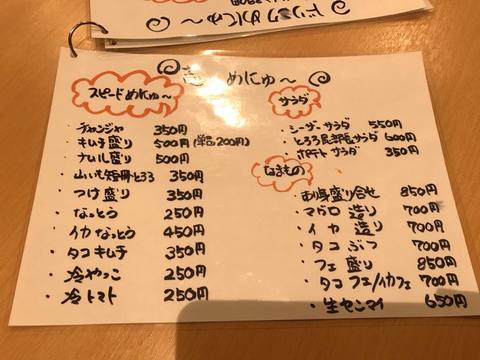 めにゅ〜
スピードめにゅ〜
チャンジャ 350円
キムチ盛り 500円 (単品200円)
ナムル盛り 500円
山いも短冊とろろ 350円
つけ盛り 350円
なっとう 250円
イカなっとう 450円
タコキムチ 350円
冷やっこ 250円
冷トマト 250円
サラダ
シーザーサラダ 550円
とろろ昆布豆腐サラダ 600円
ポテトサラダ 350円
なまもの
お刺身盛り合せ 850円
マグロ造り 700円
イカ造り 700円
タコぶつ 700円
フェ盛り 850円
タコフェ/イカフェ 700円
生センマイ 650円